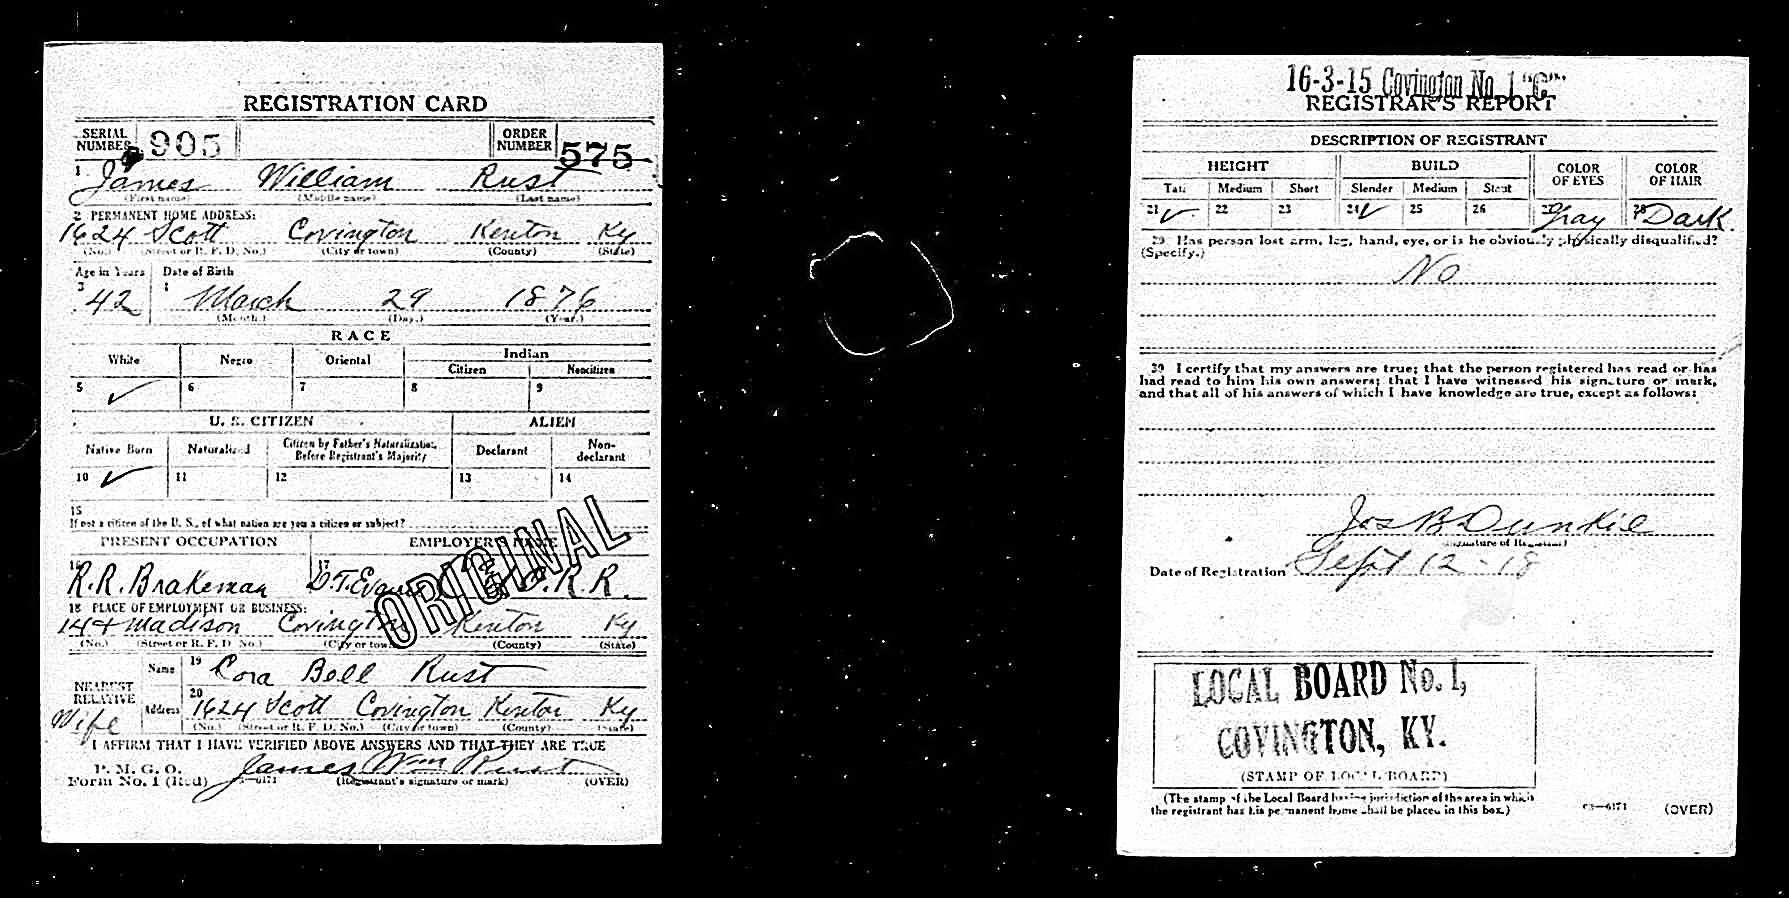 REGISTRATION CARD
SERIAL NUMBER 905 ORDER NUMBER 575
1 James William Rust
(First name) (Middle name) (Last name)
2 PERMANENT HOME ADDRESS:
1624 Scott Covington Kenton Ky
(No.) (Street or R. F. D. No.) (City or town) (County) (State)
Age in Years Date of Birth
3 42 4 March 29 1876
(Month.) (Day.) (Year.)
RACE
White Negro Oriental Indian
Citizen Noncitizen
5 ✓ 6 7 8 9
U. S. CITIZEN ALIEN
Native Born Naturalized Citizen by Father's Naturalization Before Registrant's Majority Declarant Non-declarant
10 ✓ 11 12 13 14
15
If not a citizen of the U. S., of what nation are you a citizen or subject?
PRESENT OCCUPATION EMPLOYER'S NAME
16 R.R. Brakeman 17 D.T. Evans R.R.
ORIGINAL
18 PLACE OF EMPLOYMENT OR BUSINESS:
14 + Madison Covington Kenton Ky
(No.) (Street or R. F. D. No.) (City or town) (County) (State)
NEAREST RELATIVE
Name 19 Cora Bell Rust
Wife
Address 20 1624 Scott Covington Kenton Ky
(No.) (Street or R. F. D. No.) (City or town) (County) (State)
I AFFIRM THAT I HAVE VERIFIED ABOVE ANSWERS AND THAT THEY ARE TRUE
P. M. G. O.
Form No. 1 (Red) 3—6171 James Wm Rust
(Registrant's signature or mark) (OVER)
16-3-15 Covington No. 1 "C"
REGISTRAR'S REPORT
DESCRIPTION OF REGISTRANT
HEIGHT BUILD COLOR OF EYES COLOR OF HAIR
Tall Medium Short Slender Medium Stout
21 ✓ 22 23 24 ✓ 25 26 27 Gray 28 Dark
29 Has person lost arm, leg, hand, eye, or is he obviously physically disqualified?
(Specify.)
No
30 I certify that my answers are true; that the person registered has read or has
had read to him his own answers; that I have witnessed his signature or mark,
and that all of his answers of which I have knowledge are true, except as follows:
Jos B Dunkie
(Signature of Registrar)
Date of Registration Sept 12 - 18
LOCAL BOARD No. 1,
COVINGTON, KY.
(STAMP OF LOCAL BOARD)
(The stamp of the Local Board having jurisdiction of the area in which
the registrant has his permanent home shall be placed in this box.)
03—6171 (OVER)